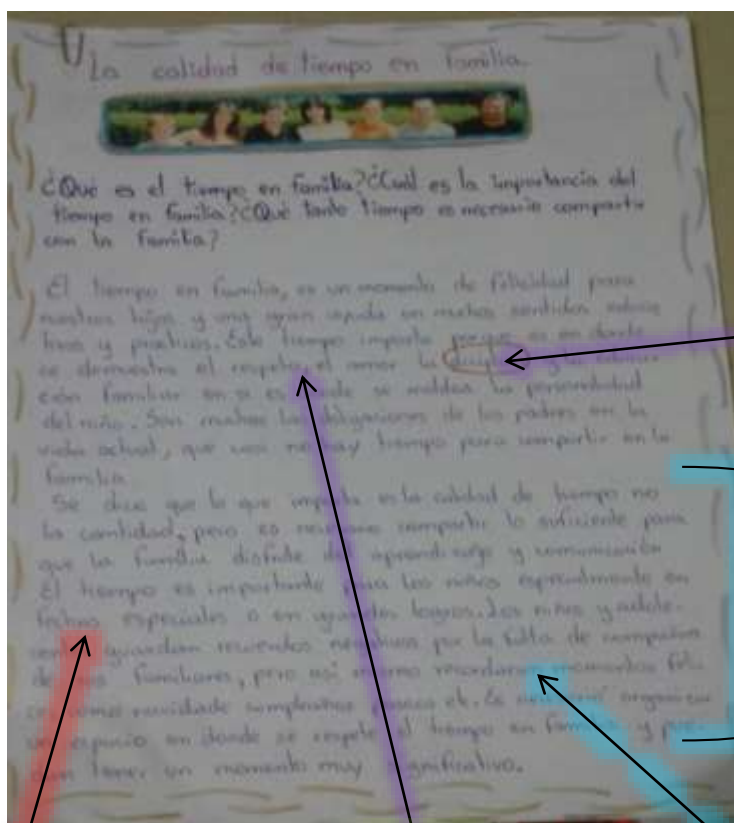 La calidad de tiempo en familia.
¿Qué es el tiempo en familia? ¿Cuál es la importancia del
tiempo en familia? ¿Qué tanto tiempo es necesario compartir
con la familia?
El tiempo en familia, es un momento de felicidad para
nuestros hijos y una gran ayuda en muchos sentidos
y practicos. Este tiempo importa porque es en donde
se demuestra el respeto, el amor la
familiar en si es donde se moldea la personalidad
del niño. Son muchas las obligaciones de los padres en la
vida actual, que casi no hay tiempo para compartir en la
familia.
Se dice que lo que importa es la calidad de tiempo no
la cantidad, pero es necesario compartir lo suficiente para
que la familia disfrute del aprendizaje y comunicación
El tiempo es importante para los niños especialmente en
fechas especiales o en grandes logros. Los niños y adole-
guardan recuerdos negativos por la falta de compañia
de sus familiares, pero así mismo recordaran momentos feli-
como navidade cumpleaños et. Es necesario organizar
un espacio en donde se respete el tiempo en familia y
tener un momento muy significativo.